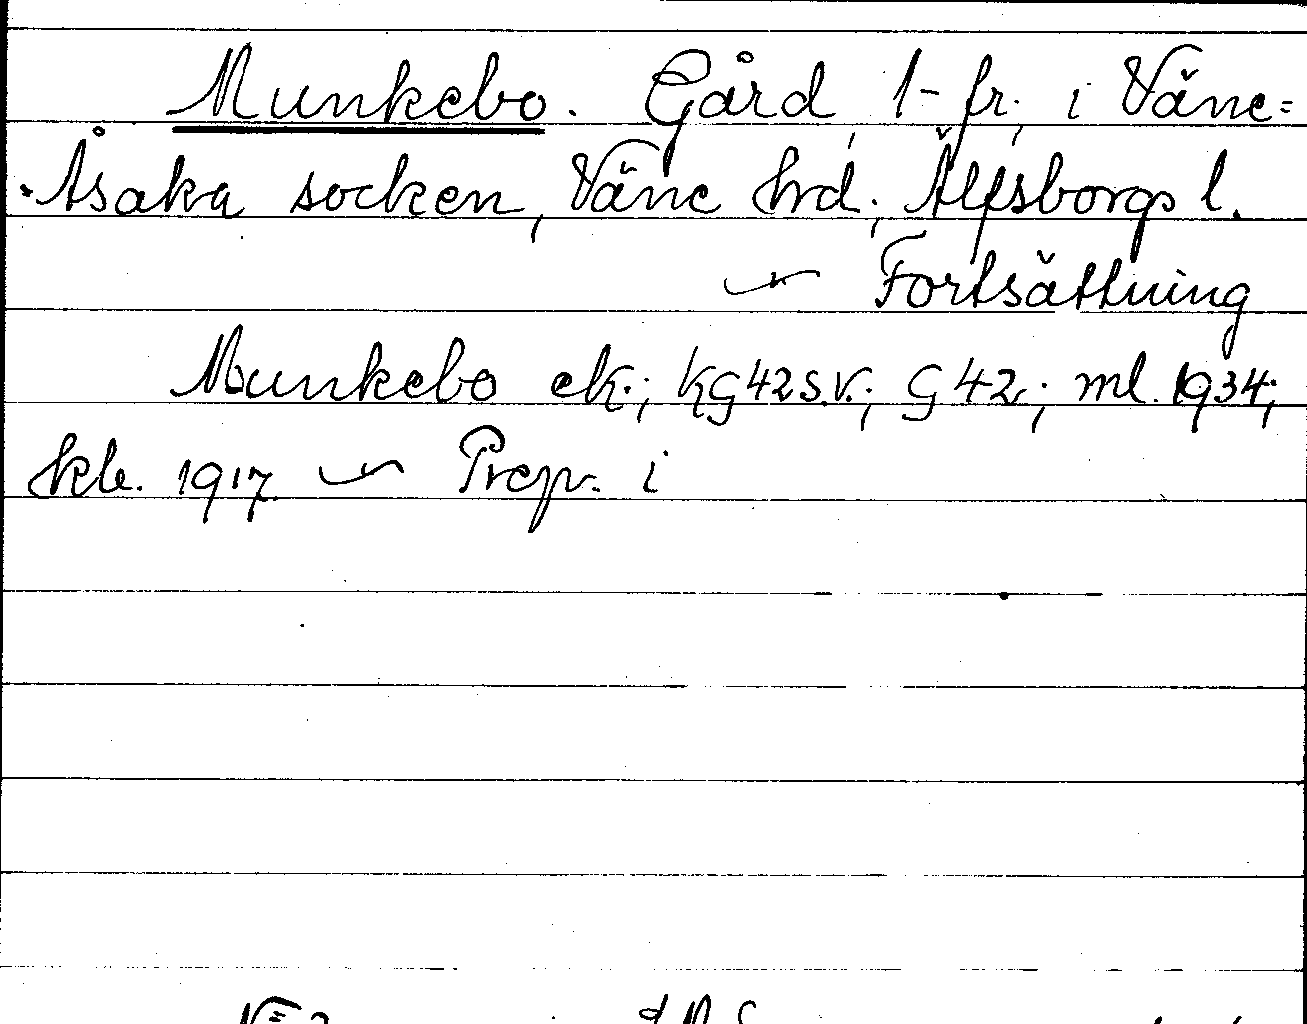 Munkebo. Gård, 1- fr., i Väne-
Åsaka socken, Väne hrd., Älfsborgs l.
Fortsättning
Munkebo ek.; KG42S.V.; G42; ml. 1934;
kb. 1917. Prep. i